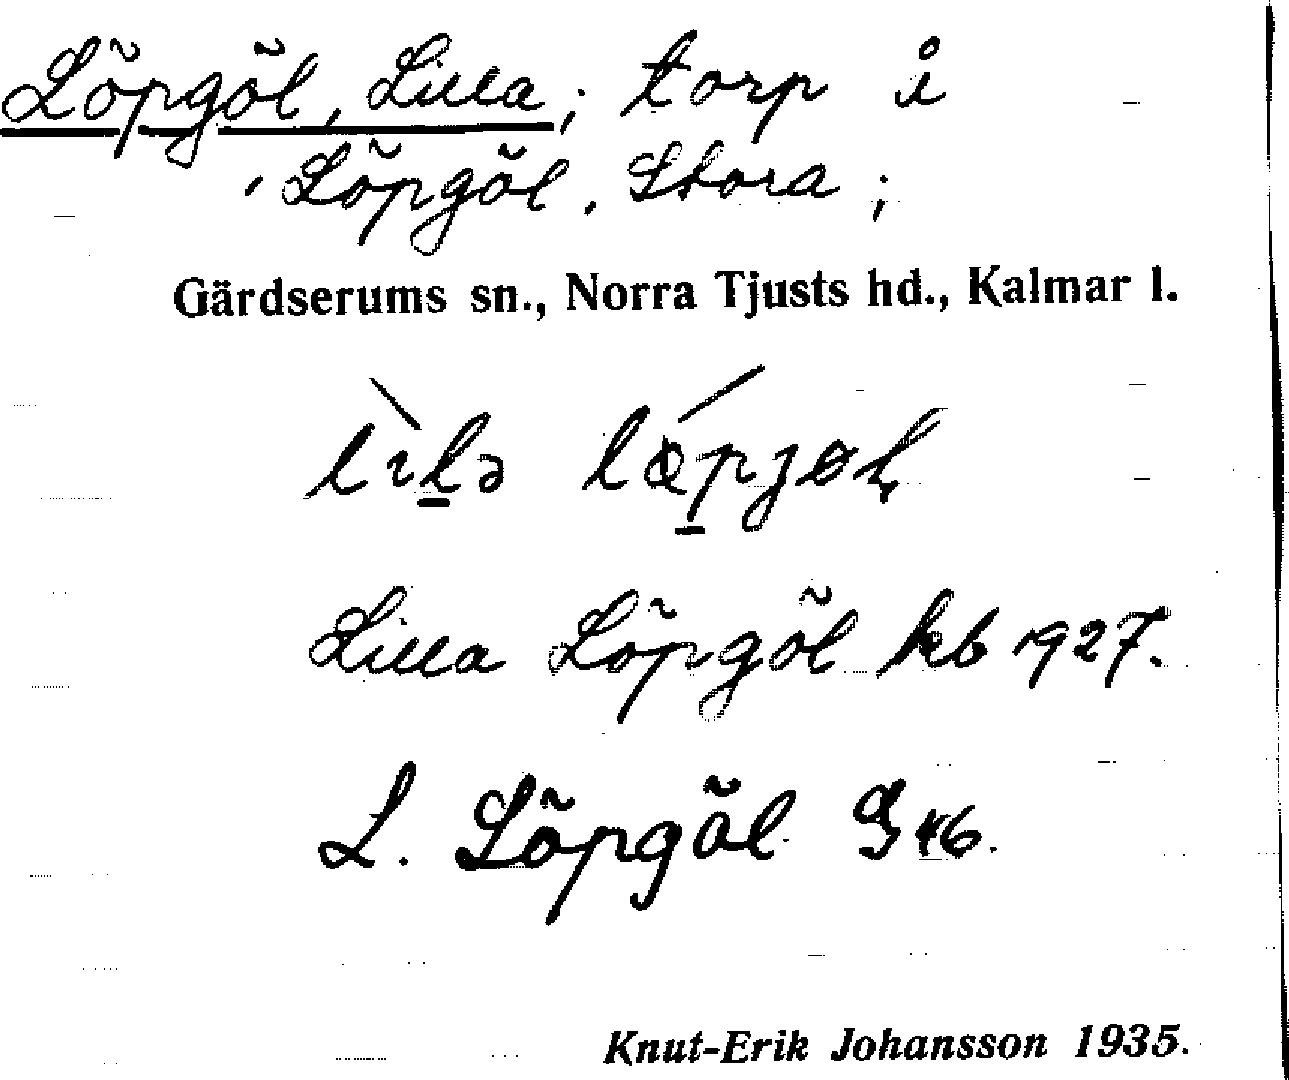 Löpgöl, Lilla; torp i
Löpgöl, Stora;
Gärdserums sn., Norra Tjusts hd., Kalmar l.
Lilla Löpgöl kb 1927.
L. Löpgöl G 46.
Knut-Erik Johansson 1935.